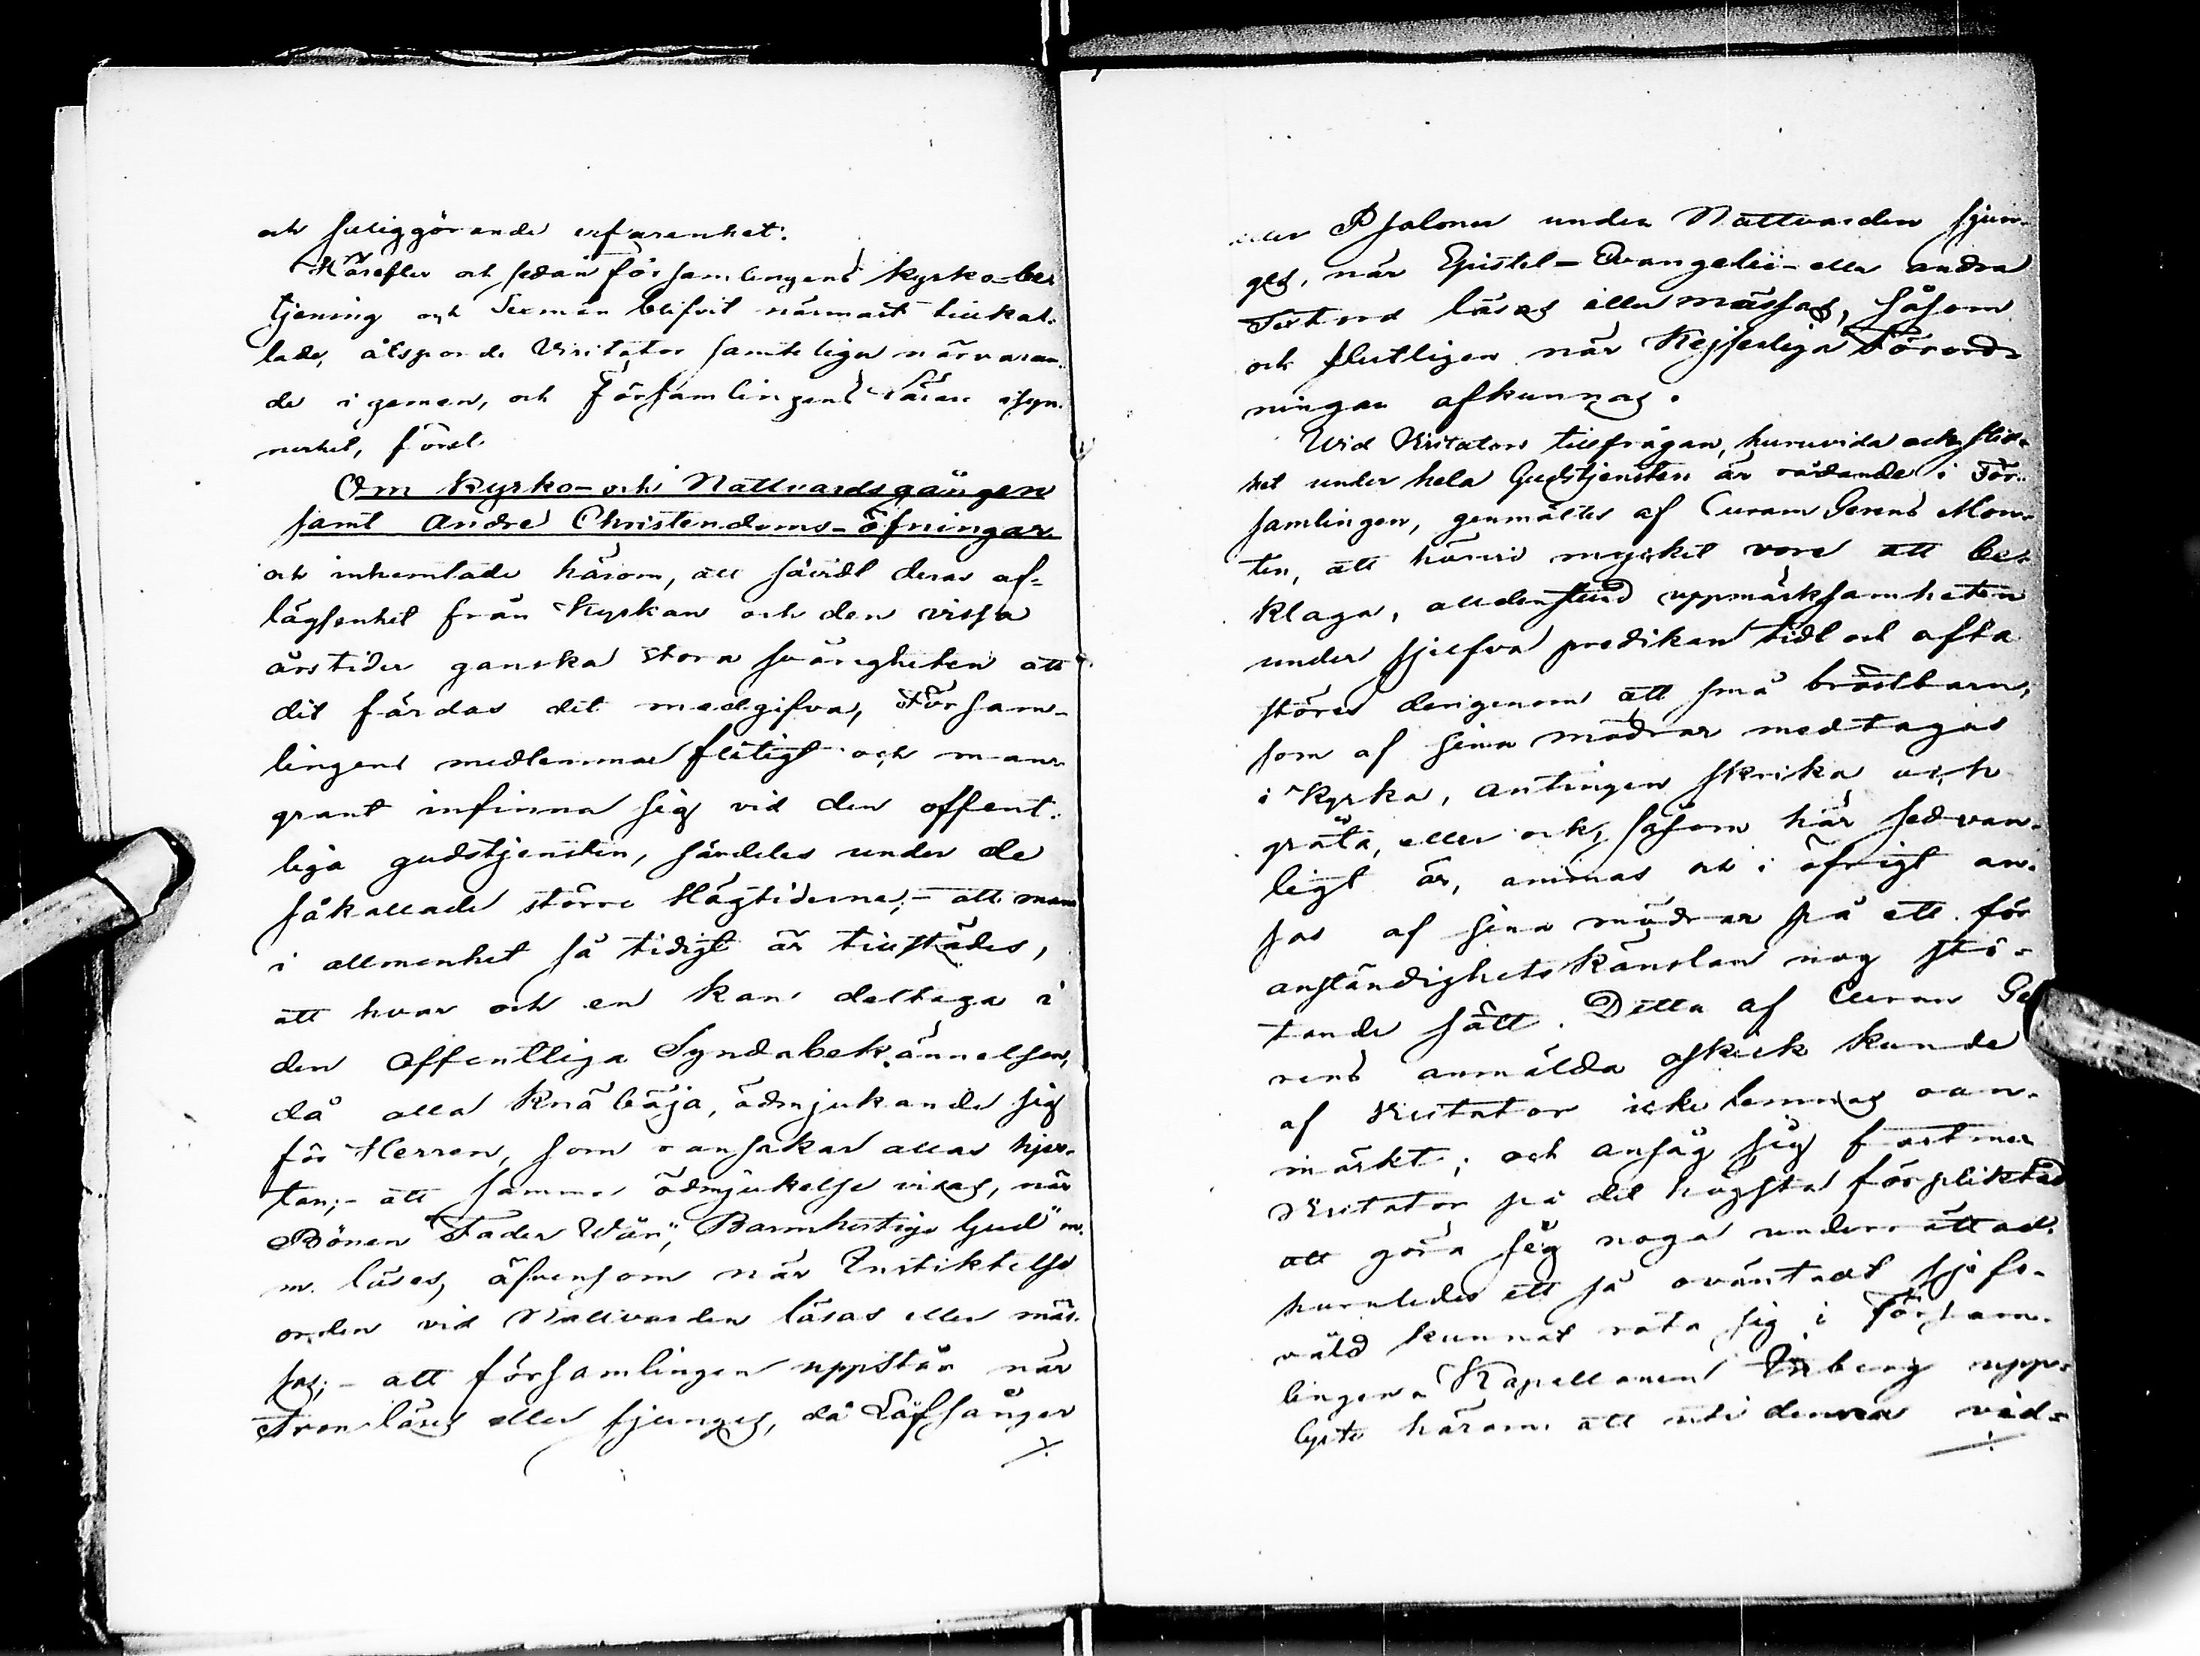 och saliggörande erfarenhet.
Härefter och sedan församlingens kyrko-be-
tjening och Sexmän blifvit närmast tillkal-
lade, åtsporde Visitator samtelige närvaran-
de i gemen, och Församlingens Lärare isyn-
nerhet, först
Om Kyrko- och Nattvardsgången
samt andre Christendoms-öfningar
och inhemtade härom, att såvidt deras af-
lägsenhet från Kyrkan och den vissa
årstider ganska stora svårigheten att
dit färdas det medgifva, Försam-
lingens medlemmar flitigt och man-
grant infinna sig vid den offent-
liga gudstjensten, särdeles under de
såkallade större Högtiderna; - att man
i allmenhet så tidigt är tillstädes,
att hvar och en kan deltaga i
den offentliga Syndabekännelsen,
då alla Knäböja, ödmjukande sig
för Herren, som ransakar allas hjer-
tan; - att samma ödmjukelse visas, när
Bönen "Fader Wår", "Barmhertige Gud" m.
m. läses, äfvensom när Instiktelse
orden vid Nattvarden läsas eller mäs-
sas; - att församlingen uppstår när
Tron läses eller sjunges, då Lofsånger
eller Psalmer under Nattvarden sjun-
ges, när Epistel- Evangelii- eller andra
Textord läses eller mässas, såsom
och slutligen när Kejserliga Förord-
ningar afkunnas.
Wid Visitators tillfrågan, huruvida ock stil-
het under hela Gudstjensten är rådande i För-
samlingen, genmältes af Curam Gerens Mon-
tin, att härvid mycket vore att be-
klaga, alldenstund uppmärksamheten
under sjelfva predikan tidt och ofta
störes derigenom att små bröstbarn,
som af sina mödrar medtagas
i Kyrka, antingen skrika och
gråta, eller ock, såsom här sedvan-
ligt är, ammas och i öfrigt an-
sas af sina mödrar på ett för
anständighets känslan nog stö-
tande sätt. Detta af Curam Ge
rens anmälda oskick kunde
af Visitator icke lemnas oan-
märkt; och ansåg sig fastmer
Visitator på det högsta förpliktad
att göra sig noga underrättad,
huruledes ett så oväntadt sjelfs-
våld kunnat rota sig i Försam-
lingen. Kapellanen berg upp-
lyste härom att uti denna vid-